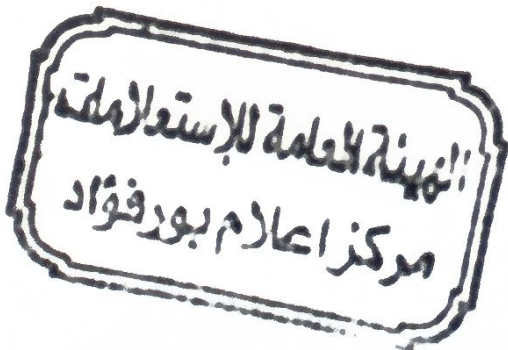 الهيئة العامة للإستعلامات
مركز اعلام بورفؤاد